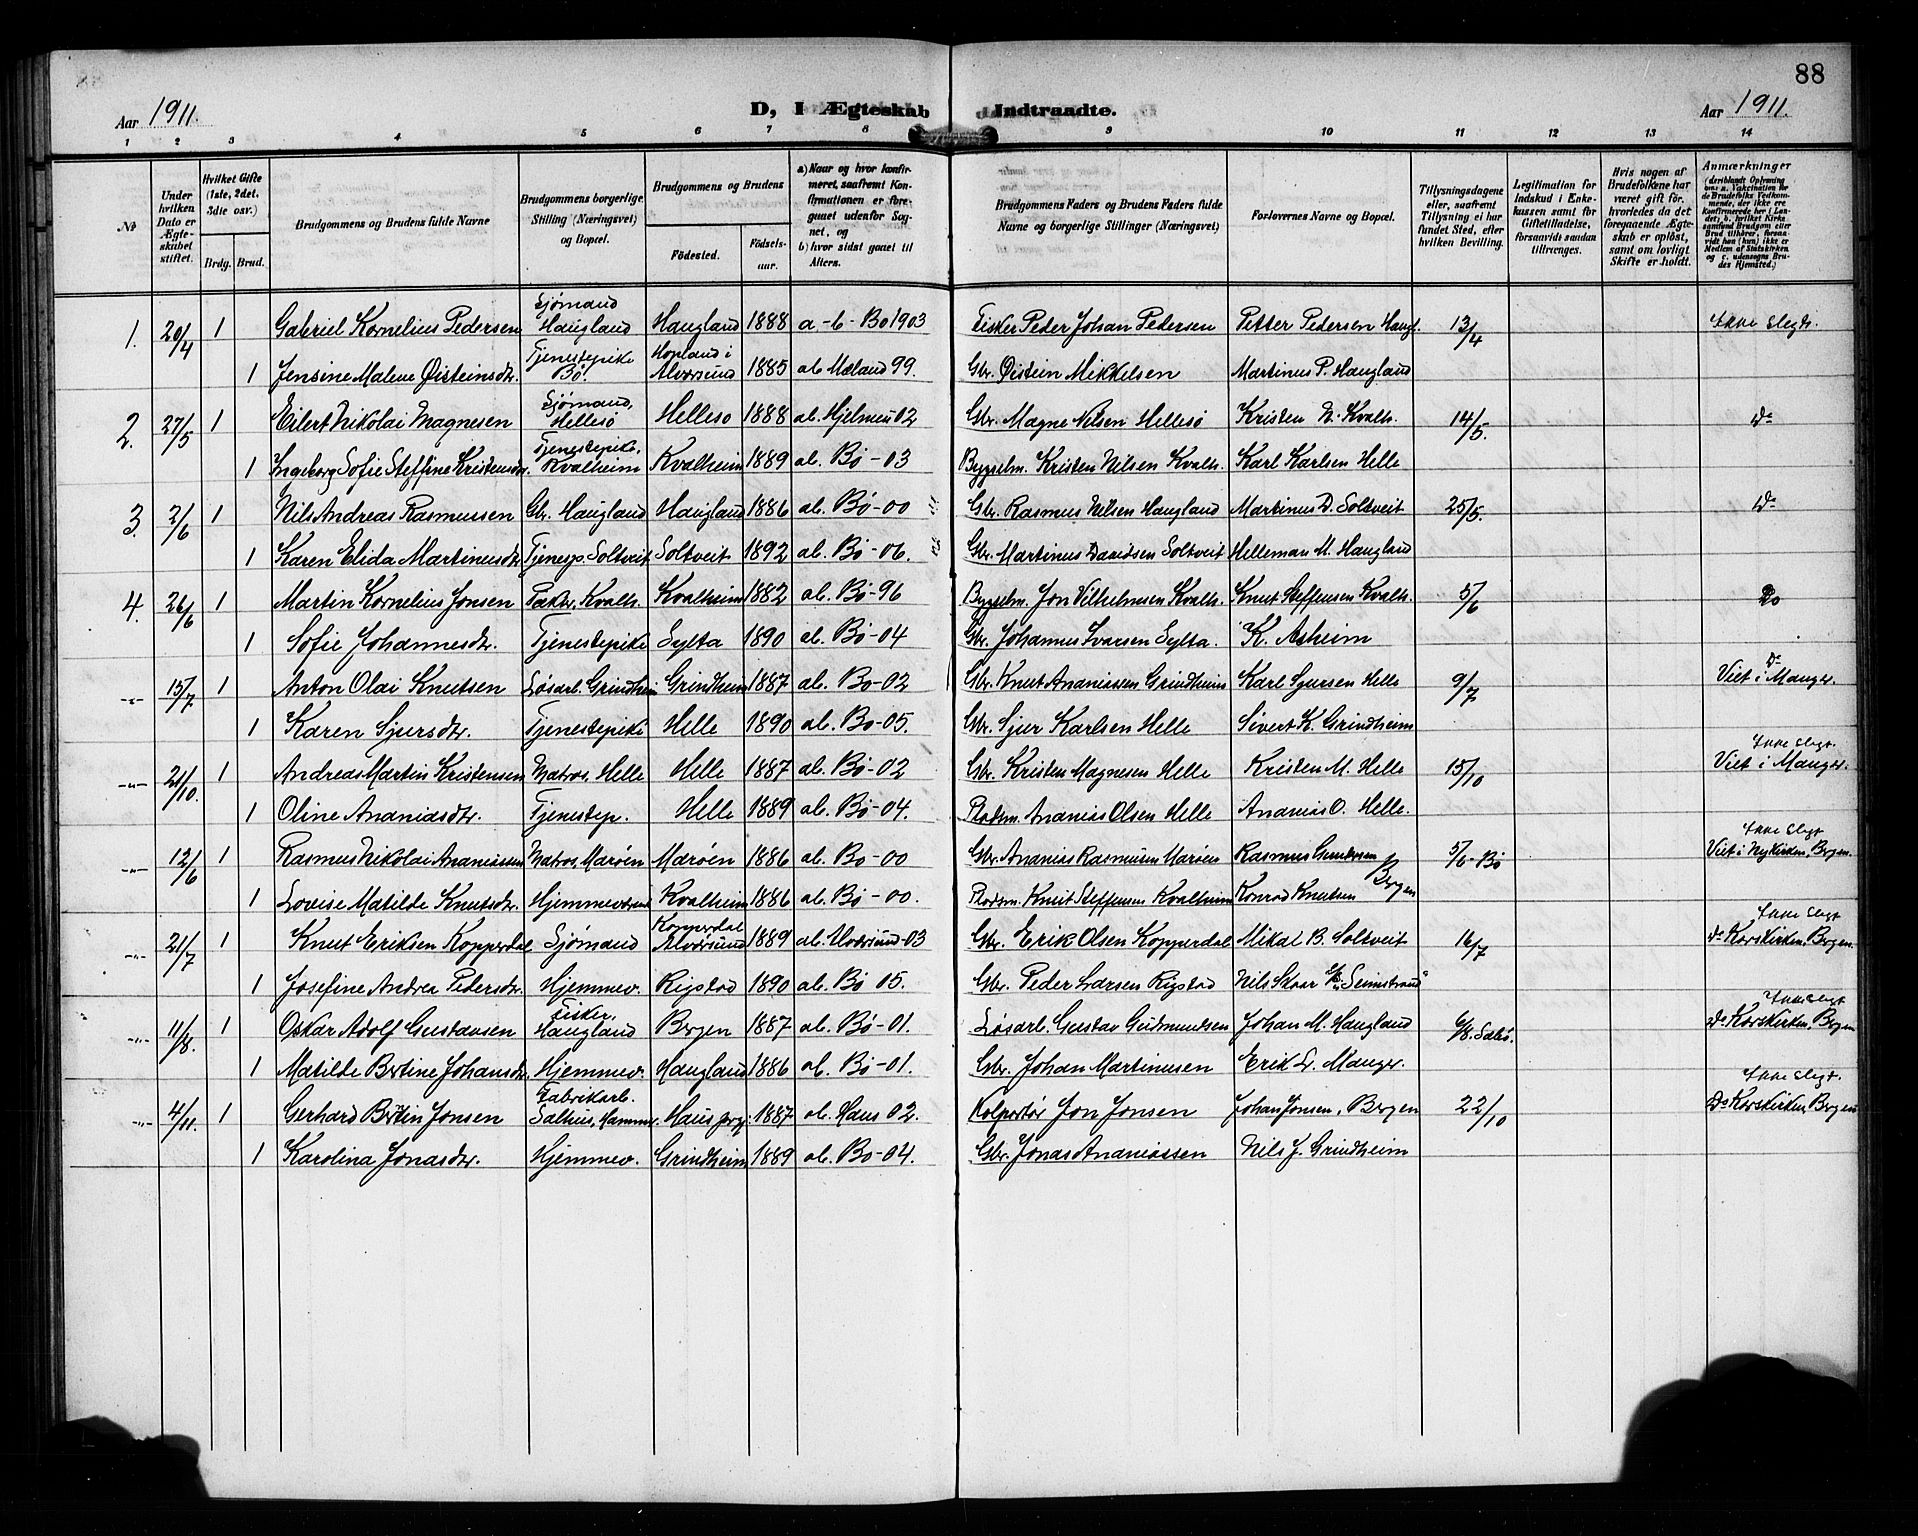 88
Aar 1911.
D, I Ægteskab Indtraadte.
Aar 1911.
1 2 3 4 5 6 7 8 9 10 11 12 13 14
№
Under hvilken Dato er Ægteskabet stiftet.
Hvilket Gifte (1ste, 2det, 3die osv.)
Brdg. Brud.
Brudgommens og Brudens fulde Navne
Brudgommens borgerlige Stilling (Næringsvei) og Bopæl.
Brudgommens og Brudens
Fødested.
Fødselsaar.
a) Naar og hvor konfirmeret, saafremt Konfirmationen er foregaaet udenfor Sognet, og
b) hvor sidst gaaet til Alters.
Brudgommens Faders og Brudens Faders fulde Navne og borgerlige Stillinger (Næringsvei)
Forlovernes Navne og Bopæl.
Tillysningsdagene eller, saafremt Tillysning ei har fundet Sted, efter hvilken Bevilling.
Legitimation for Indskud i Enkekassen samt for Giftetilladelse, forsaavidt saadan tiltrænges.
Hvis nogen af Brudefolkene har været gift før, hvorledes da det foregaaende Ægteskab er opløst, samt om lovligt Skifte er holdt.
Anmærkninger
1. 20/4 1 Gabriel Kornelius Pedersen Sjømand Haugland Haugland 1888 a-b- Bø 1903 Fisker Peder Johan Pedersen Petter Pedersen Haugl. 13/4 Ikke slegt.
1 Jensine Malene Øisteinsdtr. Tjenestepike Bø. Hopland i Alversund 1885 ab Mæland 99. Gbr. Øistein Mikkelsen Martinus P. Haugland
2. 27/5 1 Eilert Nikolai Magnesen Sjømand, Hellesø Hellesø 1888 ab. Hjelmen 02 Gbr. Magne Nilsen Hellesø Kristen N. Kvalh. 14/5. Do
1 Ingeborg Sofie Steffine Kristensdr. Tjenestepike, Kvalheim Kvalheim 1889 ab. Bø - 03 Bygselm. Kristen Nilsen Kvalh. Karl Karlsen Helle
3. 2/6 1 Nils Andreas Rasmussen Gbr. Haugland Haugland 1886 ab. Bø - 00 Gbr. Rasmus Nilsen Haugland Martinus D. Soltveit 25/5. Do
1 Karen Elida Martinusdtr Tjenesp. Soltveit Soltveit 1892 ab. Bø - 06. Gbr. Martinus Davidsen Soltveit Helleman M. Haugland
4. 26/6 1 Martin Kornelius Jonsen Kvalh. Kvalheim 1882 ab. Bø - 96 Bygselm. Jon Vilhelmsen Kvalh. Knut Steffensen Kvalh. 5/6 Do
1 Sofie Johannesdtr. Tjenestepike Sylta 1890 ab. Bø - 04 Gbr. Johannes Ivarsen Sylta. K. Asheim
-"- 15/7 1 Anton Olai Knutsen Løsarb. Grindheim Grindheim 1887 ab. Bø - 02 Gbr. Knut Ananiassen Grindheim Karl Sjursen Helle 9/7 Do Viet i Manger.
1 Karen Sjursdtr. Tjenestepike Helle 1890 ab. Bø - 05. Gbr. Sjur Karlsen Helle Sivert K. Grindheim
-"- 21/10. 1 Andreas Martin Kristensen Matros, Helle Helle 1887 ab. Bø - 02 Gbr. Kristen Magnesen Helle Kristen M. Helle 15/10 Ikke slegt. Viet i Manger.
1 Oline Ananiasdtr. Tjenestep. Helle 1889 ab. Bø - 04. Pladsm. Ananias Olsen Helle Ananias O. Helle
-"- 12/6 1 Rasmus Nikolai Ananiassen Matros, Marøen Marøen 1886 ab. Bø - 00 Gbr. Ananias Rasmussen Marøen Rasmus Gundersen Bergen 5/6 - Bø Ikke slegt Viet i Nykirken, Bergen.
1 Lovise Matilde Knutsdtr. Hjemmeværende Kvalheim 1886 ab. Bø - 00. Pladsm. Knut Steffensen Kvalheim Konrad Knutsen
-"- 21/7 1 Knut Eriksen Kopperdal Sjømand Kopperdal Alversund 1889 ab. Alversund - 03 Gbr. Erik Olsen Kopperdal Mikal B. Soltveit 16/7 Ikke slegt Do Korskirken, Bergen.
1 Josefine Andrea Pedersdtr. Hjemmev. Rigstad 1890 ab. Bø 05. Gbr. Peder Larsen Rigstad Nils Skaar "Seimstrand"
-"- 11/8. 1 Oskar Adolf Gustavsen Fisker, Haugland Bergen 1887 ab. Bø - 01. Løsarb. Gustav Gudmundsen Johan M. Haugland 6/8. Sæbø. Ikke slegt Do Korskirken, Bergen
1 Matilde Bertine Johansdtr. Hjemmev. Haugland 1886 ab. Bø - 01. Gbr. Johan Martinusen Erik L. Manger.
-"- 4/11. 1 Gerhard Bertin Jonsen Fabrikarb. Salhus, Hammer. Haus prg. 1887 ab. Haus 02. Kolportør Jon Jonsen Johan Jonsen, Bergen 22/10 Ikke slegt. Do Korskirken, Bergen
1 Karolina Jonasdtr. Hjemmev. Grindheim 1889 ab. Bø - 04. Gbr. Jonas Ananiassen Nils J. Grindheim